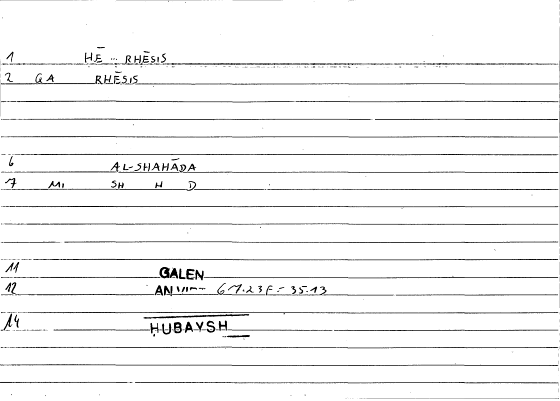 1 HĒ -- RHĒSIS
2 QA RHĒSIS
6 AL-SHAHĀDA
7 MI SH H D
11 GALEN
12 AN 35.13
14 ḤUBAYSH